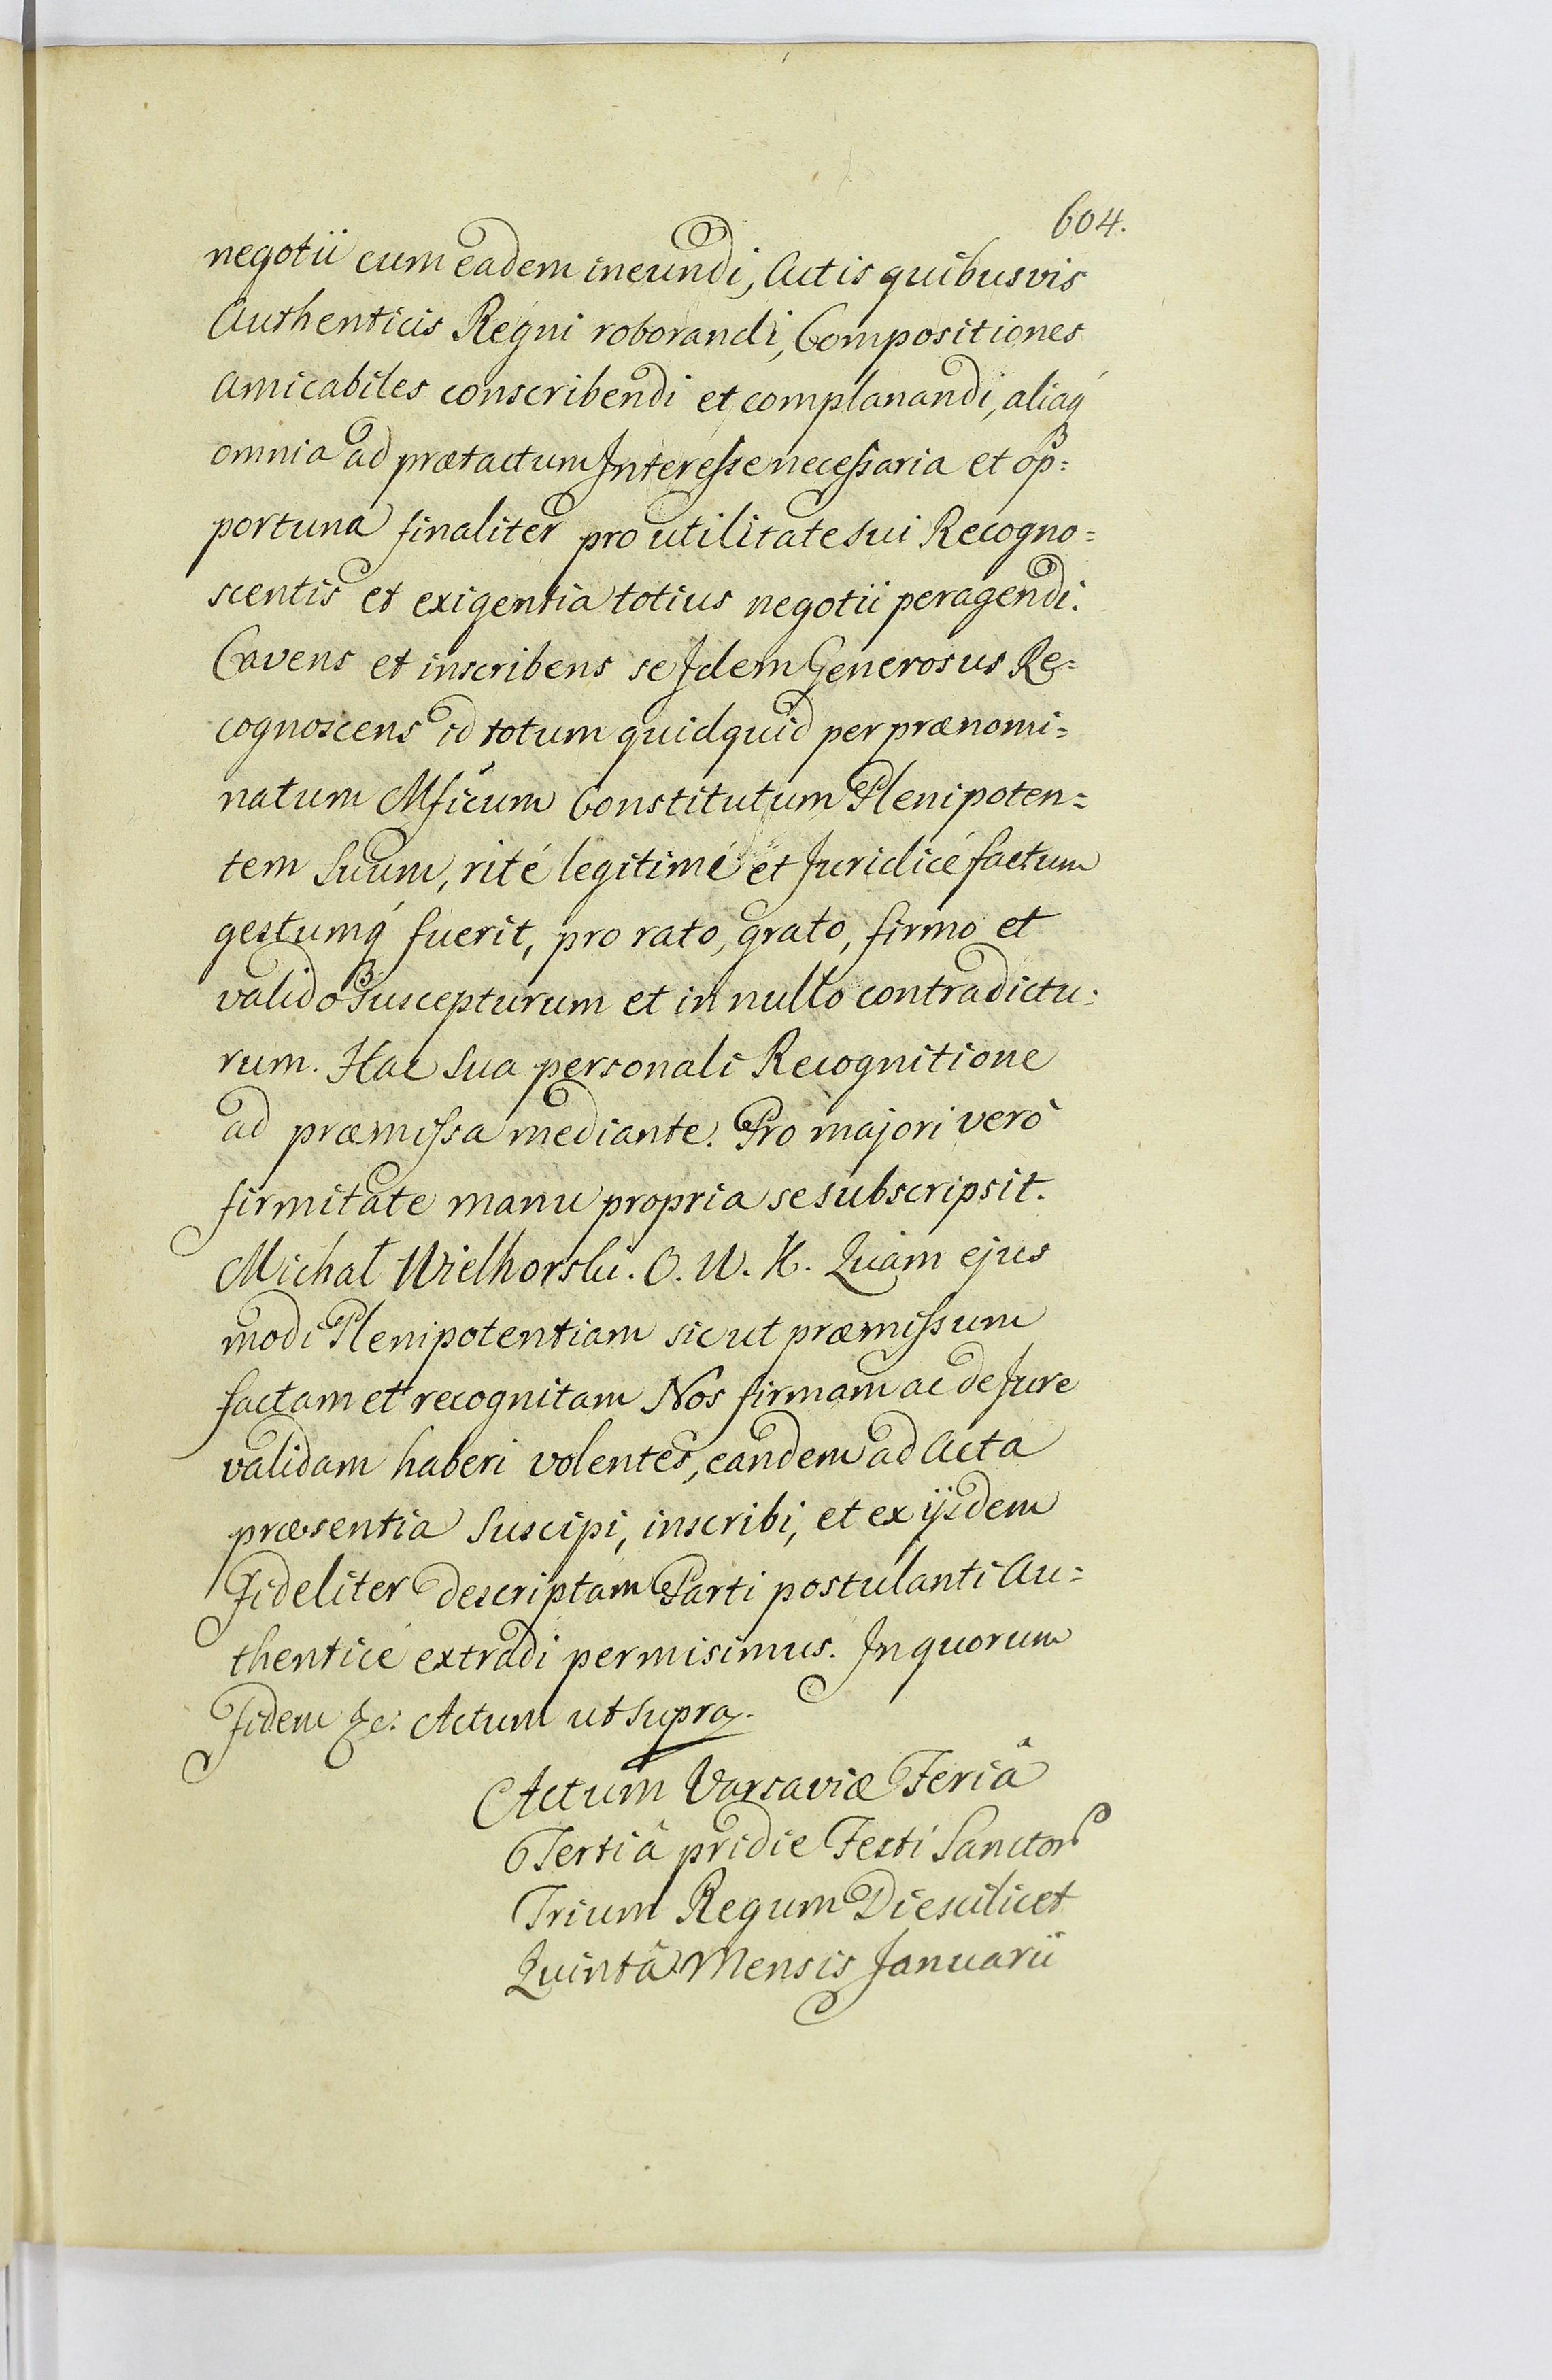 604.
negotii cum eadem ineundi, Actis quibusvis
Authenticis Regni roborandi, Compositiones
amicabiles conscribendi et complanandi, aliaq́
omnia ad prætactum Interesse necessaria et op=
portuna finaliter pro utilitate sui Recogno=
scentis et exigentia totius negotii peragendi.
Cavens et inscribens se Idem Generosus Re=
cognoscens id totum quidquid per prænomi=
natum Mficum Constitutum Plenipoten=
tem Suum, rité legitimé et Juridicé factum
gestumq́ fuerit, pro rato, grato, firmo et
valido suscepturum et in nullo contradictu=
rum. Hac Sua personali Recognitione
ad præmissa mediante. Pro majori verò
firmitate manu propria se subscripsit.
Michał Wielhorski. O. W. K. Quam ejus
modi Plenipotentiam sicut præmissum
factam et recognitam Nos firmam ac de Jure
validam haberi volentes, eandem ad Acta
præsentia Suscipi, inscribi, et ex ijsdem
Fideliter descriptam Parti postulanti Au=
thenticé extradi permisimus. In quorum
Fidem &c: Actum ut supra.
Actum Varsaviæ Feriâ
Tertiâ pridie Festi Sanctor
Trium Regum Die scilicet
Quintâ Mensis Januarii